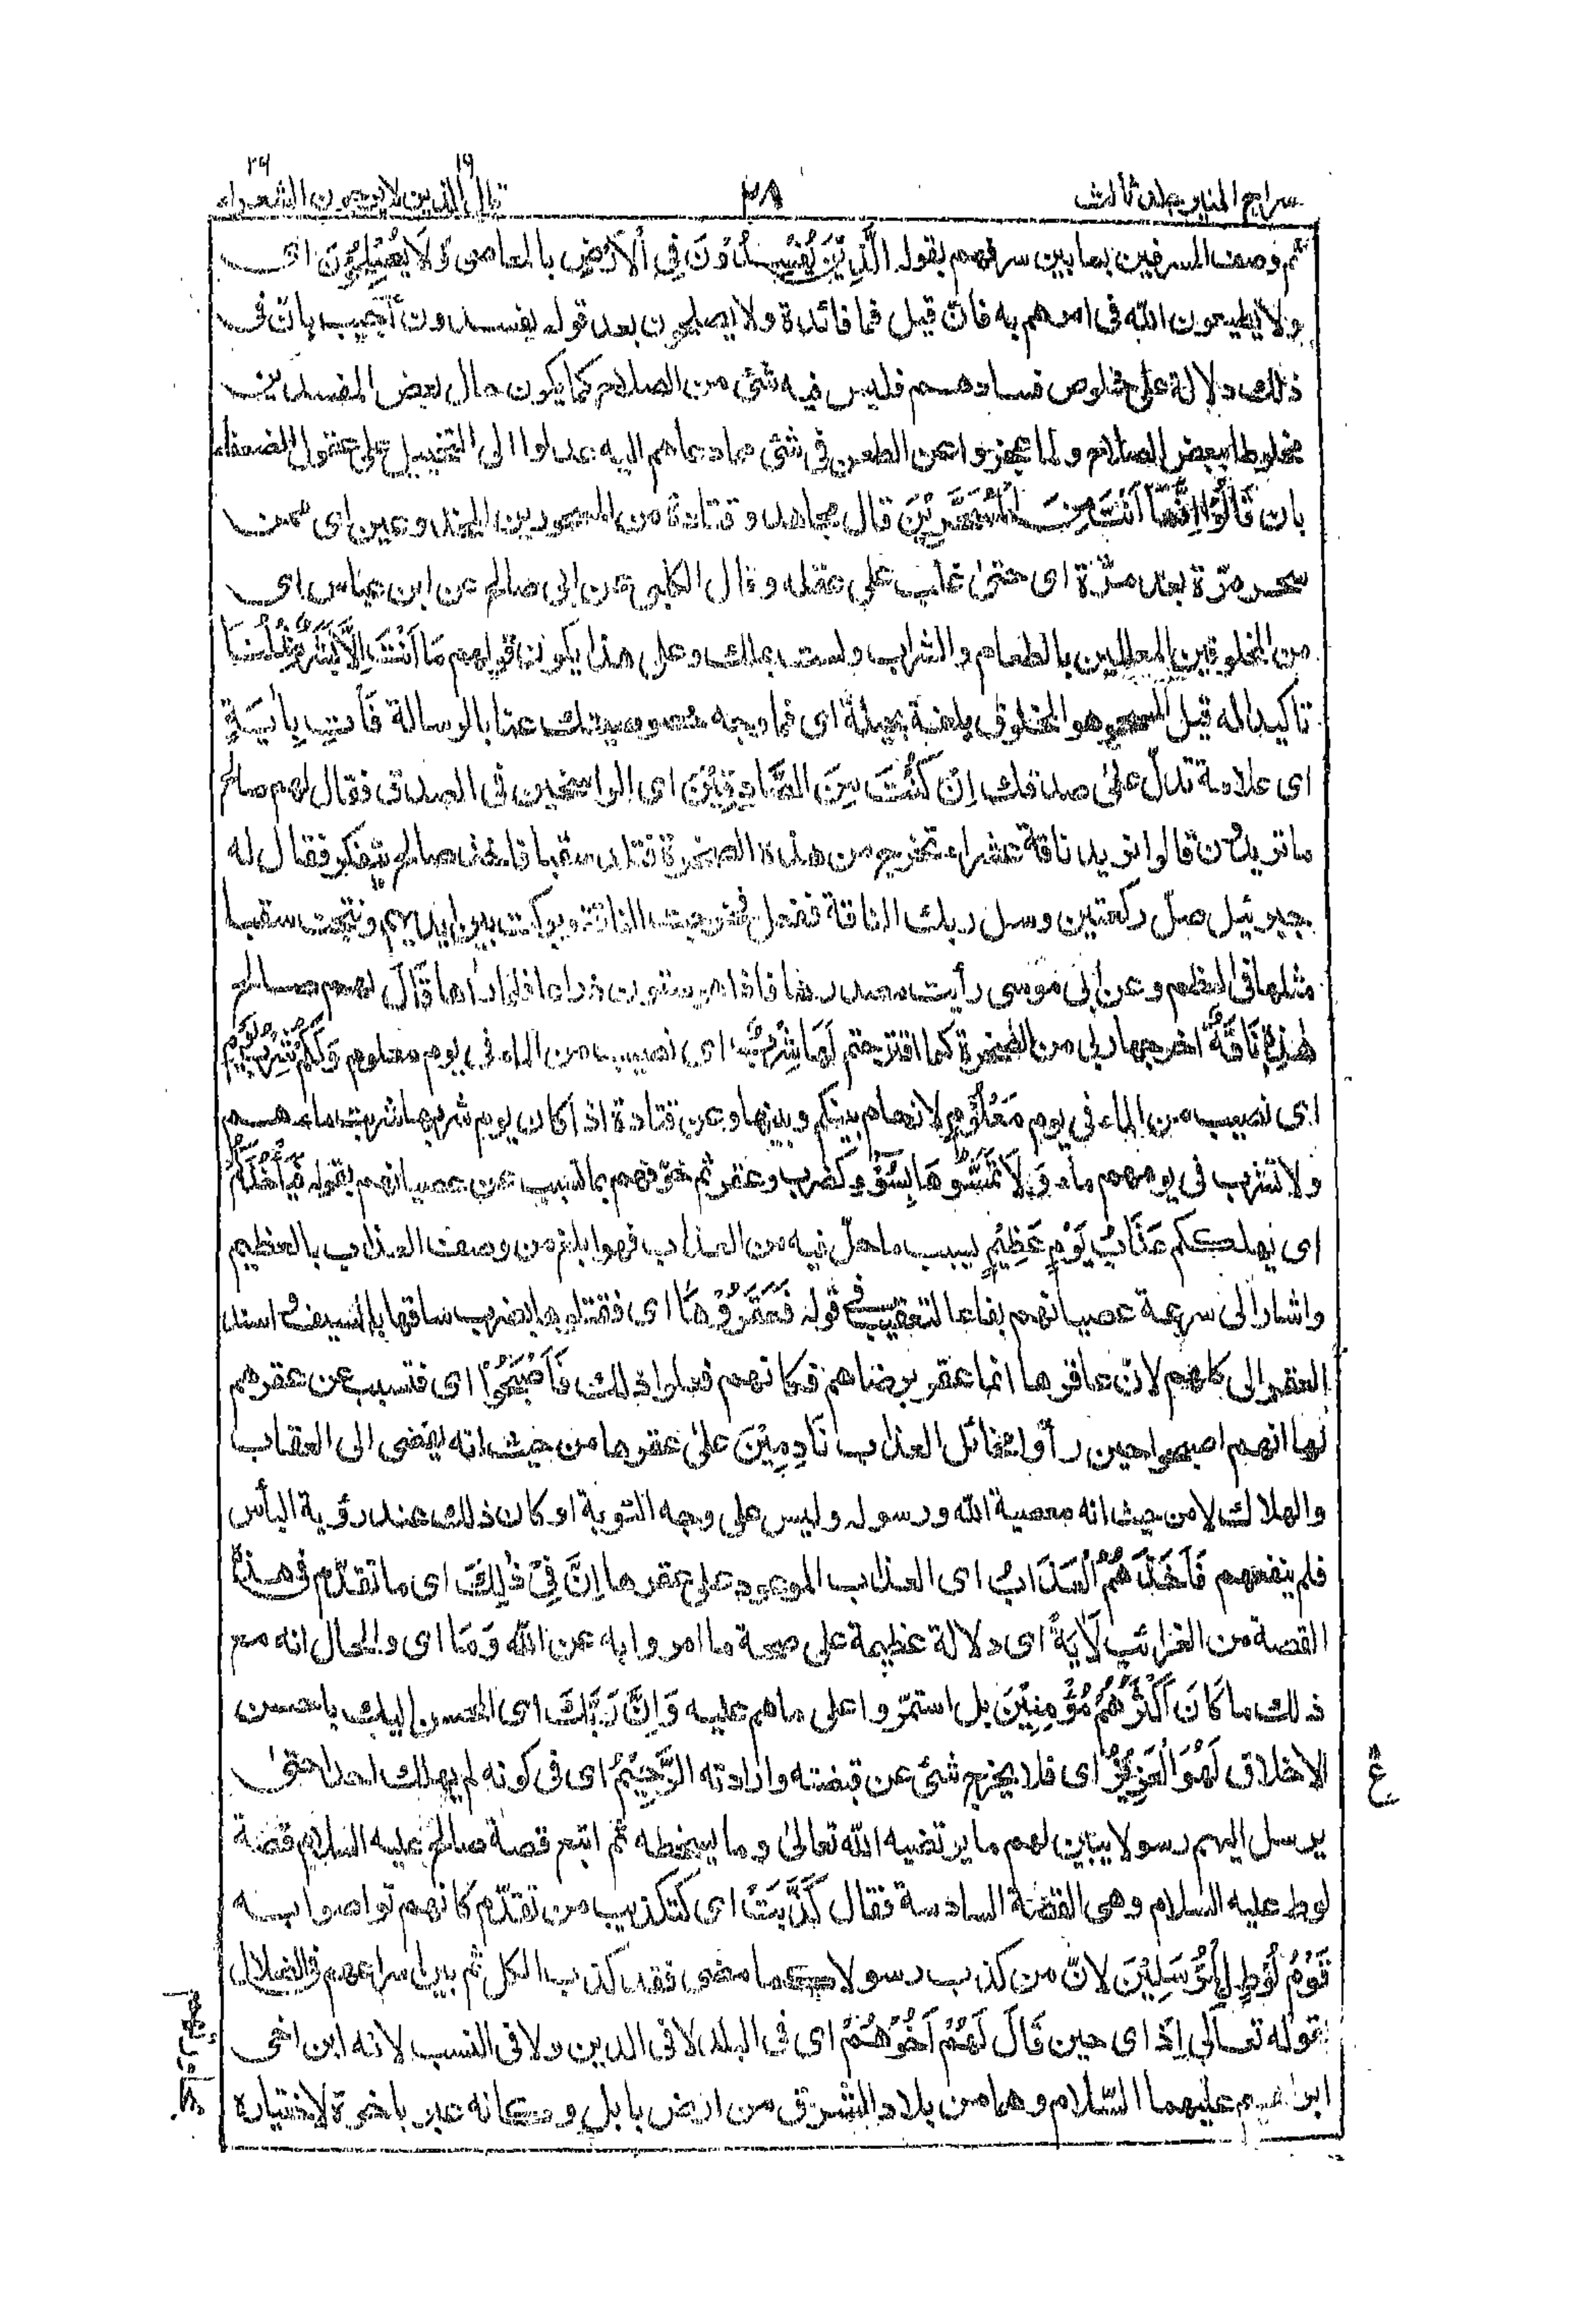 سراج المنير جلد ثالث
٣٨
قال الذين لا يرجون الشعراء
١٩
٢٦
ثم وصف المسرفين بما بين سرفهم بقوله الَّذِيْنَ يُفْسِدُوْنَ فِى الْاَرْضِ بالمعاصى وَلَا يُصْلِحُوْنَ اى
ولا يطيعون الله فى امرهم به فان قيل فما فائدة ولا يصلحون بعد قوله يفسدون أجيب بان فى
ذلك دلالة على خلوص فسادهم فليس فيه شئ من الصلاح كما يكون حال بعض المفسدين
مخلوطا ببعض الصلاح ولما عجزوا عن الطعن فى شئ مما دعاهم اليه عدلوا الى التخييل على عقول الضعفاء
بان قَالُوْٓا اِنَّمَآ اَنْتَ مِنَ الْمُسَحَّرِيْنَ قال مجاهد وقتادة من المسحورين المخدوعين اى ممن
سحر مرّة بعد مرّة اى حتى غلب على عقله وقال الكلبى عن ابى صالح عن ابن عباس اى
من المخلوقين المعللين بالطعام والشراب ولست بملك وعلى هذا يكون قولهم مَا اَنْتَ اِلَّا بَشَرٌ مِّثْلُنَا
تاكيدا له قيل المسحر هو المخلوق بلغة بجيلة اى فما وجه خصوصيتك عنا بالرسالة فَأْتِ بِاٰيَةٍ
اى علامة تدلّ على صدقك اِنْ كُنْتَ مِنَ الصّٰدِقِيْنَ اى الراسخين فى الصدق فقال لهم صالح
ما تريدون قالوا نريد ناقة عشراء تخرج من هذه الصخرة فتلد سقبا فاخذ صالح يتفكر فقال له
جبرئيل صلّ ركعتين وسل ربك الناقة ففعل فخرجت الناقة وبركت بين ايديهم ونتجت سقبا
مثلها فى العظم وعن ابى موسى رأيت مصدرها فاذا هو ستون ذراعا فلما راٰها قَالَ لهم صالح
هٰذِهٖ نَاقَةٌ اخرجها ربى من الصخرة كما اقترحتم لَهَا شِرْبٌ اى نصيب من الماء فى يوم معلوم وَلَكُمْ شِرْبُ يَوْمٍ
اى نصيب من الماء فى يوم مَعْلُوْمٍ لانعام بينكم وبينها وعن قتادة اذا كان يوم شربها شربت ماءهم
ولا تشرب فى يومهم ماء وَلَا تَمَسُّوْهَا بِسُوْٓءٍ كضرب وعقر ثم خوّفهم بما تسبب عن عصيانهم بقوله فَيَأْخُذَكُمْ
اى يهلككم عَذَابُ يَوْمٍ عَظِيْمٍ بسبب ما حلّ فيه من العذاب فهو ابلغ من وصف العذاب بالعظيم
واشار الى سرعة عصيانهم بفاء التعقيب فى قوله فَعَقَرُوْهَا اى فقتلوها بضرب ساقها بالسيف واسند
العقر الى كلهم لانّ عاقرها انما عقر برضاهم فكانهم فعلوا ذلك فَاَصْبَحُوْا اى فتسبب عن عقرهم
لها انهم اصبحوا حين رأوا مخائل العذاب نَادِمِيْنَ على عقرها من حيث انه يفضى الى العقاب
والهلاك لا من حيث انه معصية الله ورسوله وليس على وجه التوبة او كان ذلك عند رؤية البأس
فلم ينفعهم فَاَخَذَهُمُ الْعَذَابُ اى العذاب الموعود على عقرها اِنَّ فِىْ ذٰلِكَ اى ما تقدّم فى هذه
القصة من الغرائب لَاٰيَةً اى دلالة عظيمة على صحة ما امروا به عن الله وَمَا اى والحال انه مع
ذلك ما كَانَ اَكْثَرُهُمْ مُّؤْمِنِيْنَ بل استمرّوا على ما هم عليه وَاِنَّ رَبَّكَ اى المحسن اليك باحسن
الاخلاق لَهُوَ الْعَزِيْزُ اى فلا يخرج شئ عن قبضته وارادته الرَّحِيْمُ اى فى كونه لم يهلك احدا حتى
يرسل اليهم رسولا يبين لهم ما يرتضيه الله تعالى وما يسخطه ثم اتبع قصة صالح عليه السلام قصة
لوط عليه السلام وهى القصّة السادسة فقال كَذَّبَتْ اى كتكذيب من تقدّم كانهم تواصوا به
قَوْمُ لُوْطِ ࣙالْمُرْسَلِيْنَ لانّ من كذب رسولا كما مضى فقد كذب الكل ثم بين اسراعهم فى الضلال
بقوله تعالى اِذْ اى حين قَالَ لَهُمْ اَخُوْهُمْ اى فى البلد لا فى الدين ولا فى النسب لانه ابن اخى
ابراهيم عليهما السّلام وهما من بلاد الشرق من ارض بابل وكانه عبر باخوة لاختياره
ع